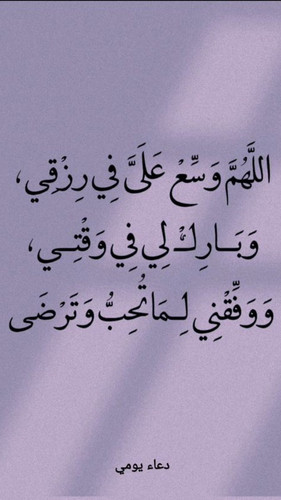 اللَّهُمَّ وَسِّعْ عَلَىَّ فِي رِزْقِي،
وَبَارِكْ لِي فِي وَقْتِي،
وَوَفِّقْنِي لِمَا تُحِبُّ وَتَرْضَى
دعاء يومي